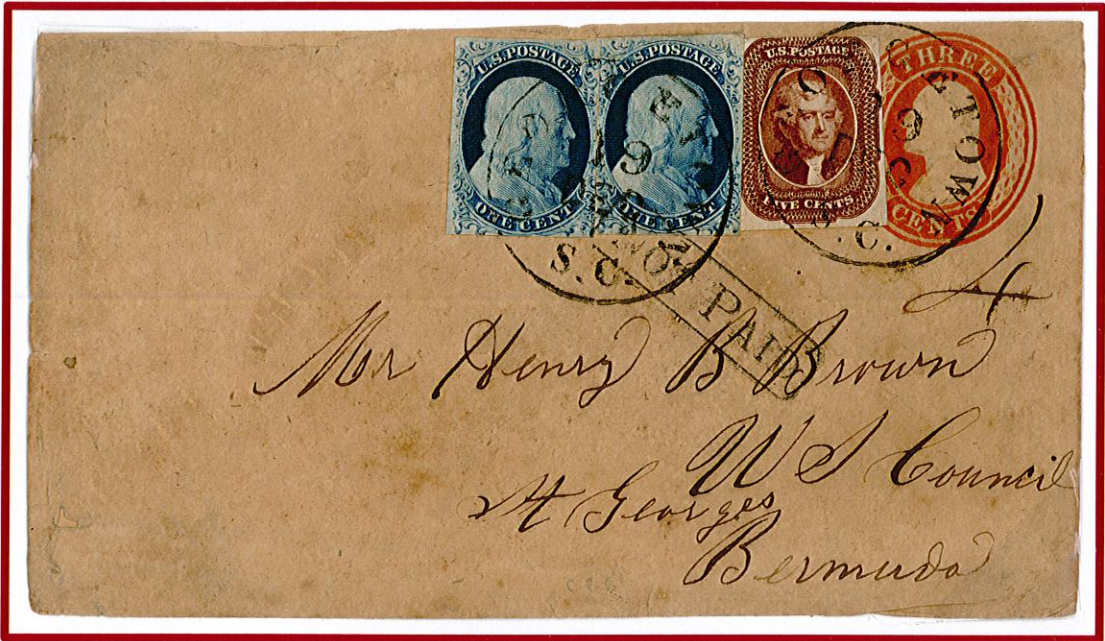 U.S. POSTAGE
ONE CENT
U.S. POSTAGE
ONE CENT
U.S. POSTAGE
FIVE CENTS
THREE
CENTS
S.C.
GEORGETOWN
S.C.
PAID
4
Mr Henry B Brown
U S Council
St Georges
Bermuda